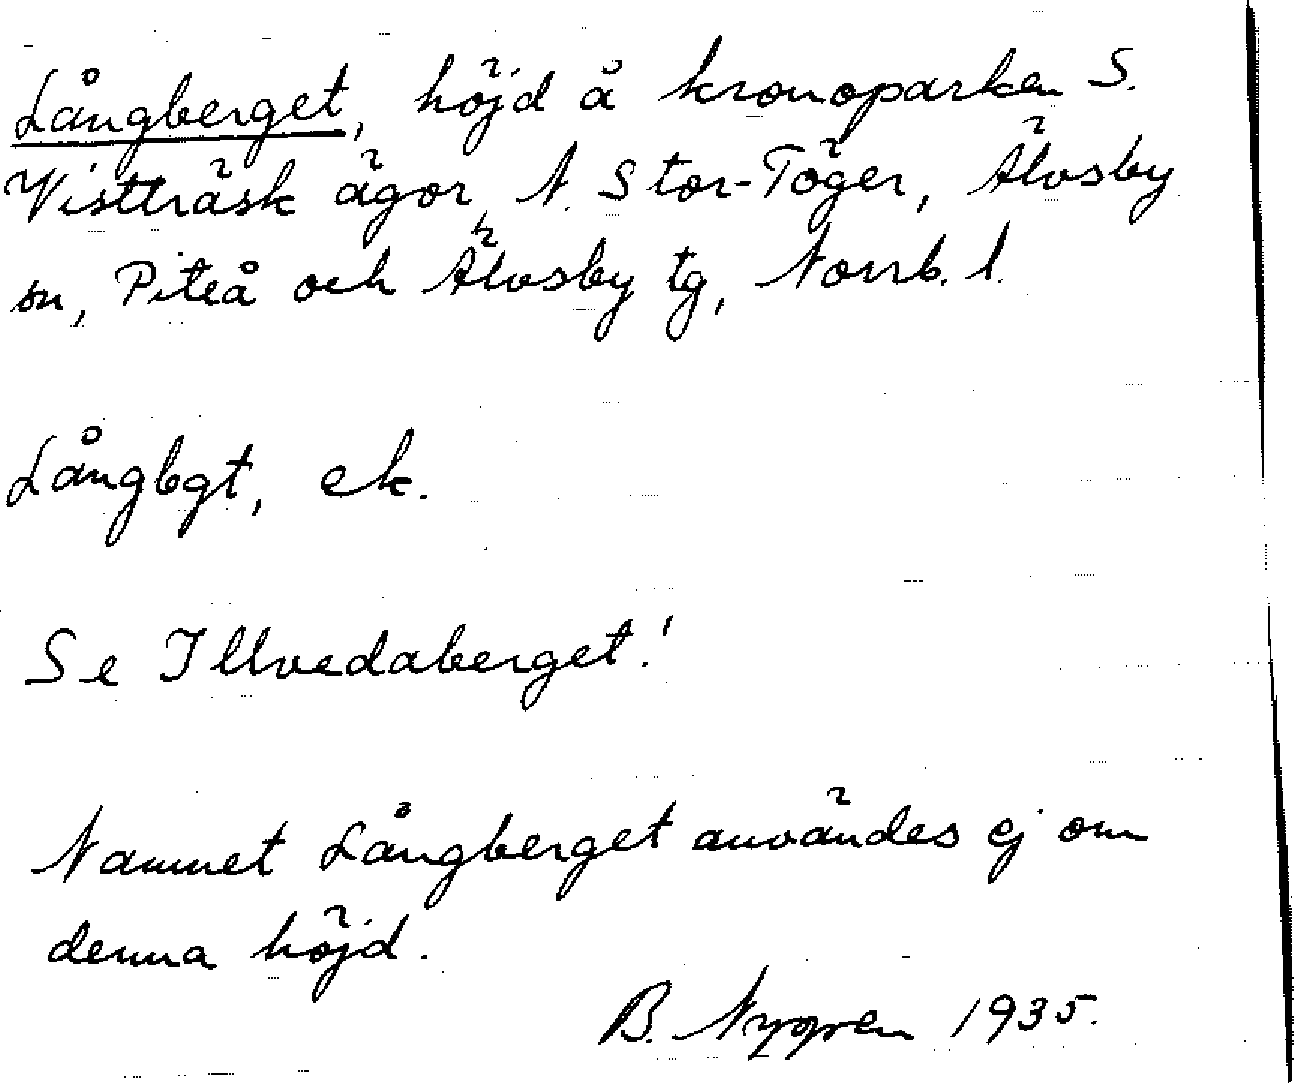 Långberget, höjd å kronoparken S.
Vistträsk ägor N. Stor-Töger, Älvsby
sn, Piteå och Älvsby tg, Norrb. l.
Långbgt, ek.
Se Illvedaberget!
Namnet Långberget användes ej om
denna höjd.
B. Nygren 1935.